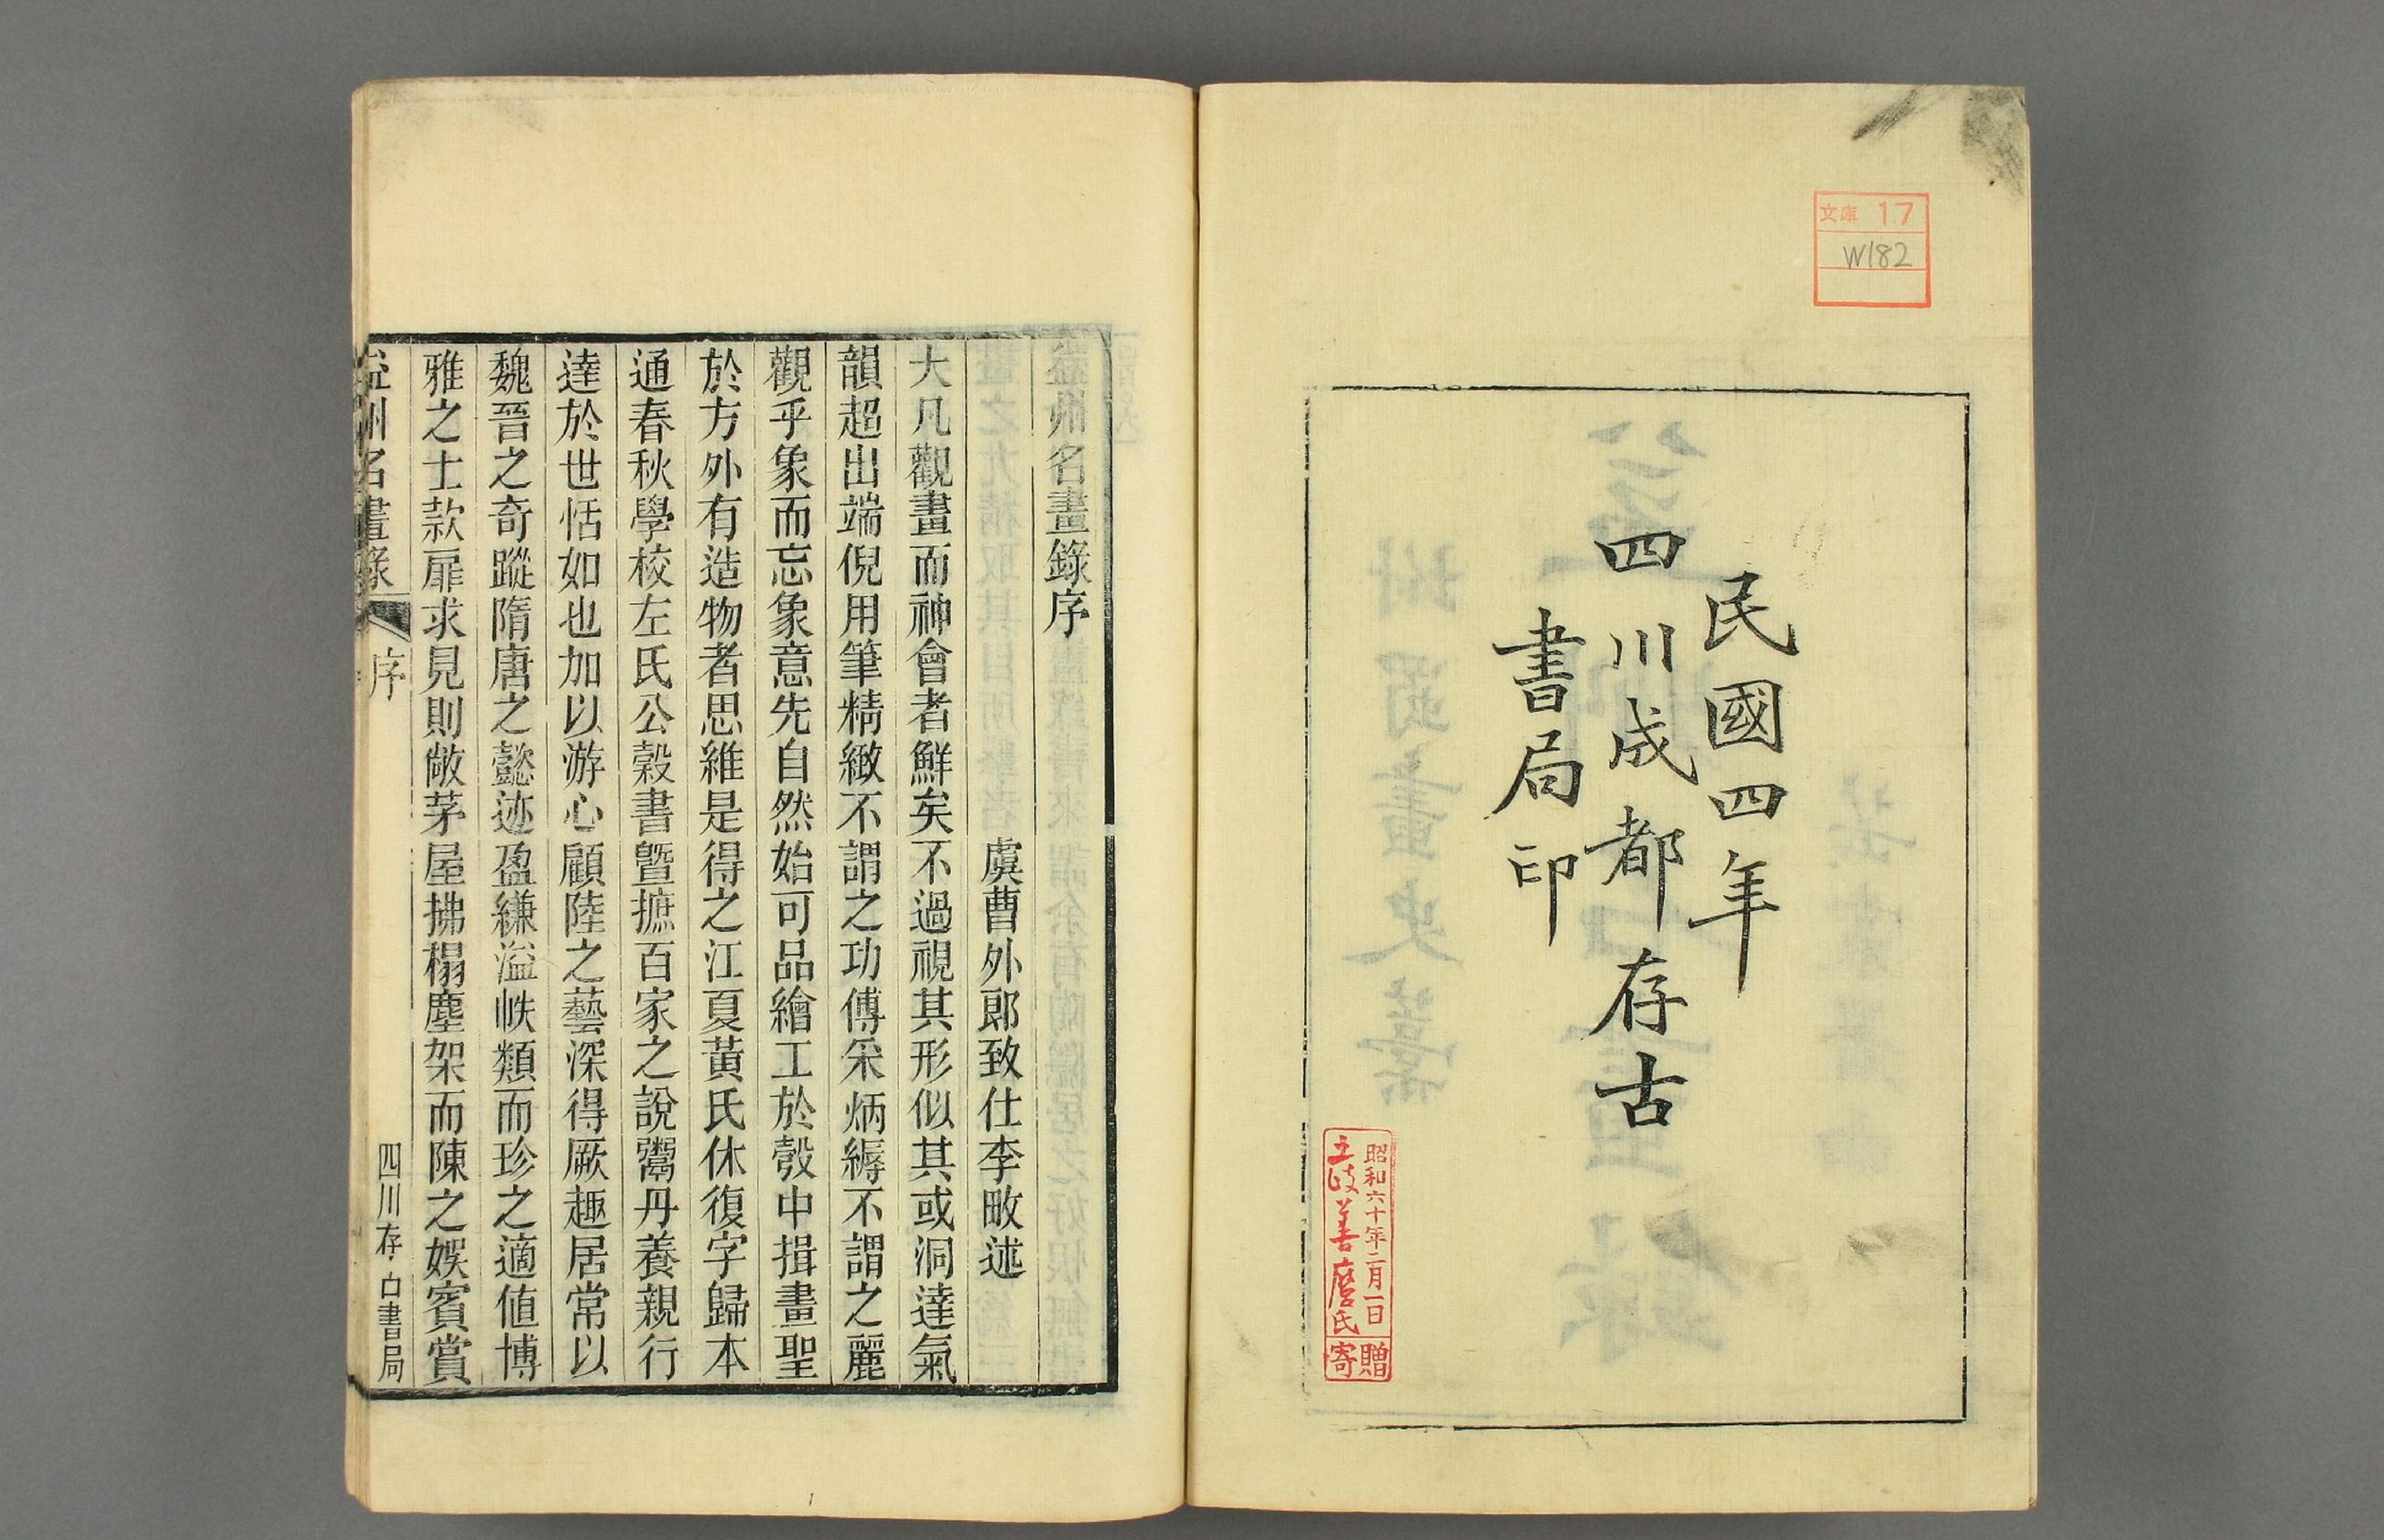 文庫 17
W182
民國四年
四川成都存古
書局印
昭和六十年二月一日
五岐善麿氏
寄贈
益州名畫錄序
虞曹外郎致仕李畋述
大凡觀畫而神會者鮮矣不過視其形似其或洞達氣
韻超出端倪用筆精緻不謂之功傅采炳縟不謂之麗
觀乎象而忘象意先自然始可品繪工於彀中揖畫聖
於方外有造物者思維是得之江夏黃氏休復字歸本
通春秋學校左氏公穀書暨摭百家之說鬻丹養親行
達於世恬如也加以游心顧陸之藝深得厥趣居常以
魏晉之奇蹤隋唐之懿迹盈縑溢帙類而珍之適値博
雅之士款扉求見則敞茅屋拂榻塵架而陳之娛賓賞
益州名畫錄 序 四川存古書局